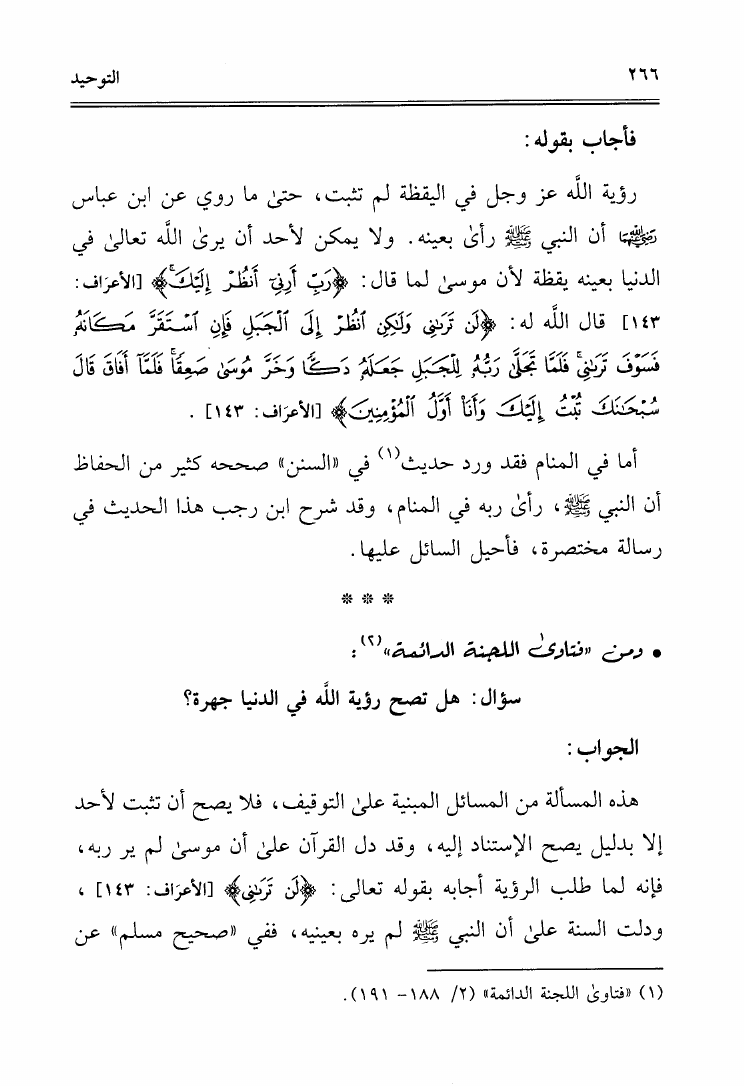 ٢٦٦
التوحيد
فأجاب بقوله:
رؤية اللَّه عز وجل في اليقظة لم تثبت، حتىٰ ما روي عن ابن عباس
رضي الله عنهما أن النبي ﷺ رأىٰ بعينه. ولا يمكن لأحد أن يرىٰ اللَّه تعالىٰ في
الدنيا بعينه يقظة لأن موسىٰ لما قال: ﴿رَبِّ أَرِنِيٓ أَنظُرۡ إِلَيۡكَۚ﴾ [الأعرَاف:
١٤٣] قال اللَّه له: ﴿لَن تَرَىٰنِي وَلَٰكِنِ ٱنظُرۡ إِلَى ٱلۡجَبَلِ فَإِنِ ٱسۡتَقَرَّ مَكَانَهُۥ
فَسَوۡفَ تَرَىٰنِيۚ فَلَمَّا تَجَلَّىٰ رَبُّهُۥ لِلۡجَبَلِ جَعَلَهُۥ دَكّٗا وَخَرَّ مُوسَىٰ صَعِقٗاۚ فَلَمَّآ أَفَاقَ قَالَ
سُبۡحَٰنَكَ تُبۡتُ إِلَيۡكَ وَأَنَا۠ أَوَّلُ ٱلۡمُؤۡمِنِينَ﴾ [الأعرَاف: ١٤٣].
أما في المنام فقد ورد حديث(١) في «السنن» صححه كثير من الحفاظ
أن النبي ﷺ، رأىٰ ربه في المنام، وقد شرح ابن رجب هذا الحديث في
رسالة مختصرة، فأحيل السائل عليها.
* * *
• ومن «فتاوىٰ اللجنة الدائمة»(٢):
سؤال: هل تصح رؤية اللَّه في الدنيا جهرة؟
الجواب:
هذه المسألة من المسائل المبنية علىٰ التوقيف، فلا يصح أن تثبت لأحد
إلا بدليل يصح الإستناد إليه، وقد دل القرآن علىٰ أن موسىٰ لم ير ربه،
فإنه لما طلب الرؤية أجابه بقوله تعالى: ﴿لَن تَرَىٰنِي﴾ [الأعرَاف: ١٤٣]،
ودلت السنة علىٰ أن النبي ﷺ لم يره بعينيه، ففي «صحيح مسلم» عن
(١) «فتاوىٰ اللجنة الدائمة» (٢/ ١٨٨- ١٩١).